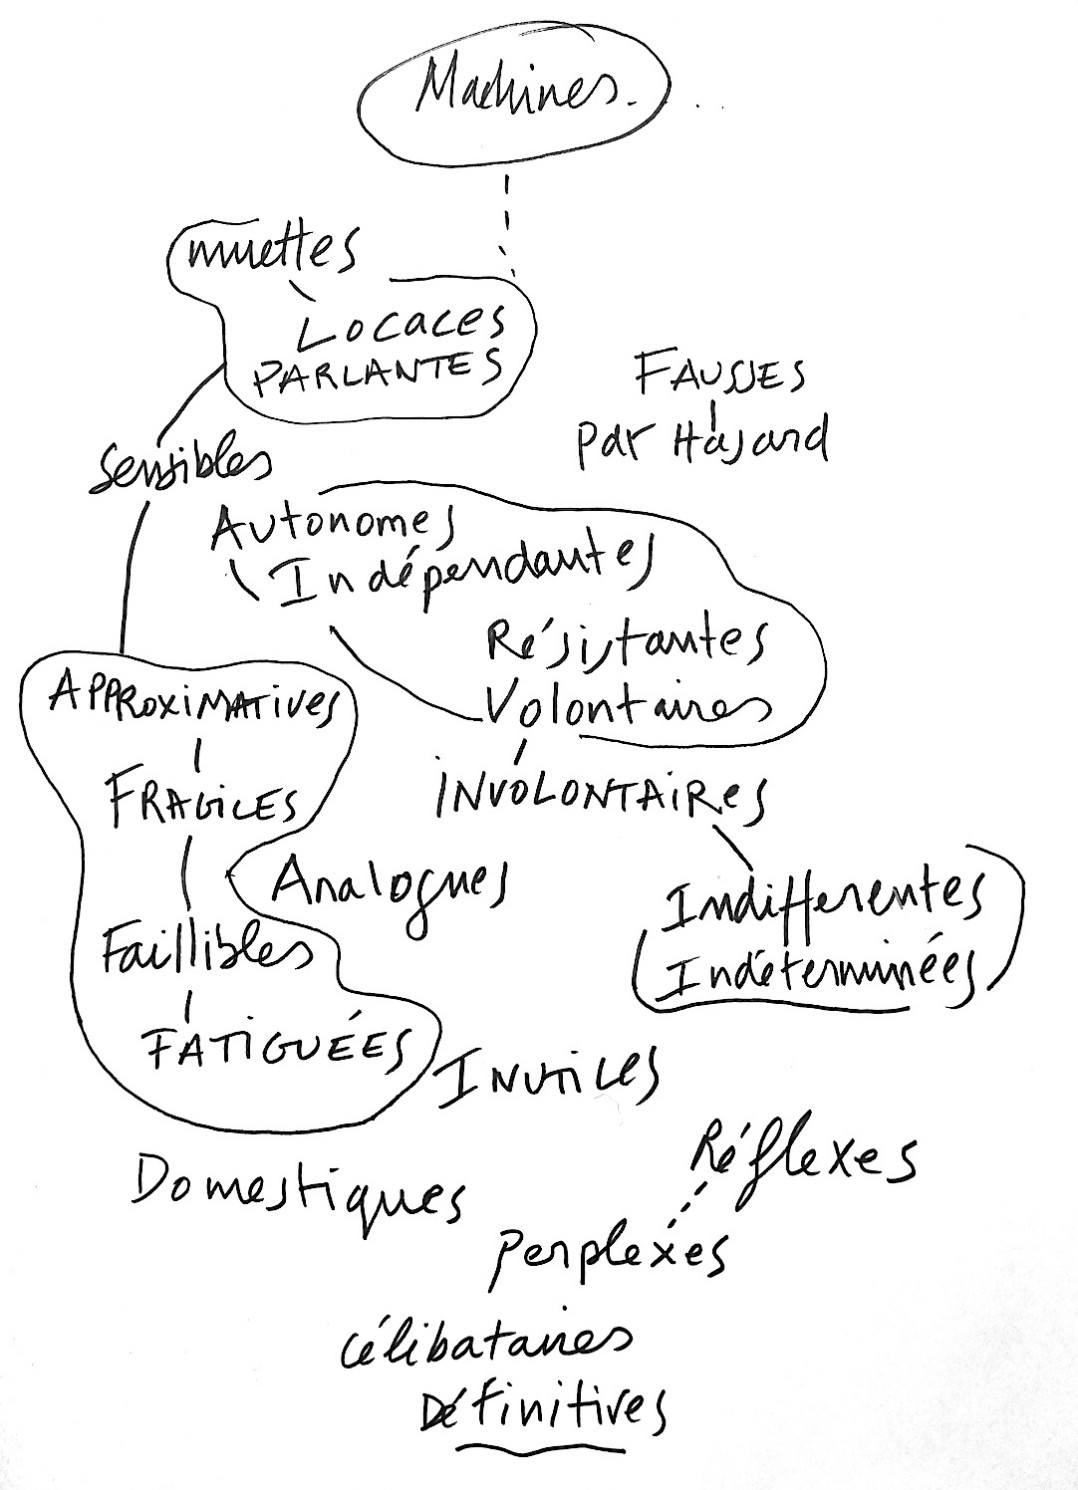 Machines. . .
muettes
LOCACES
PARLANTES
FAUSSES
par Hasard
Sensibles
Autonomes
Indépendantes
Résistantes
Volontaires
APPROXIMATIVES
FRAGILES
INVOLONTAIRES
Analogues
Indifferentes
Indéterminées
Faillibles
FATIGUÉES
INUTILES
Réflexes
Domestiques
Perplexes
Célibataires
Définitives